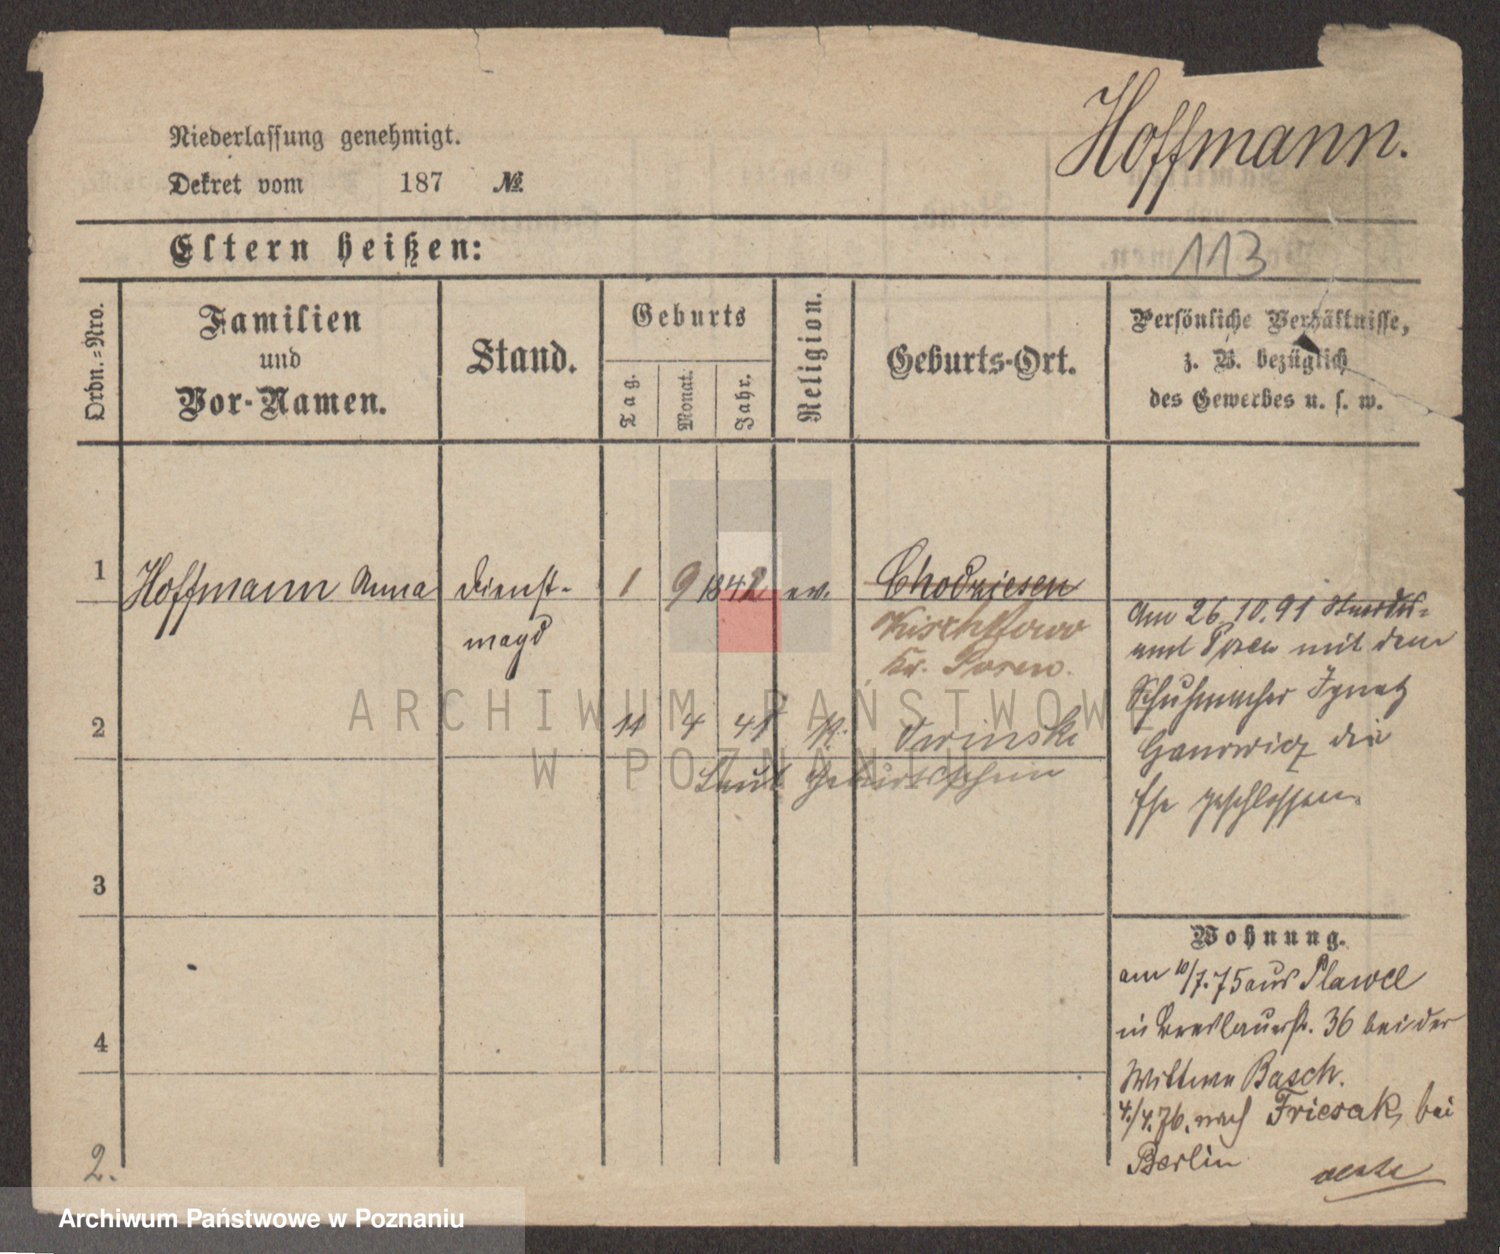 Hoffmann.
Niederlassung genehmigt.
Dekret vom 187 №
Eltern heißen:
113
Ordn.-Nro.
Familien
und
Vor-Namen.
Stand.
Geburts
Tag.
Monat.
Jahr.
Religion.
Geburts-Ort.
Persönliche Verhältnisse,
z. B. bezüglich
des Gewerbes u. s. w.
1 Hoffmann Anna Dienst- 1 9 1842 ev. Chodziesen
magd
Kr. Posen.
am 26.10.91
amt Posen mit dem
Schuhmacher Ignatz
die
Ehe geschlossen.
2 11 4 41 K.
Laut Geburtsschein
3
4
Wohnung.
am 10/7.75 aus Plawce
in Breslauerstr. 36 bei der
Wittwe Basch.
4./4.76. nach Friesak, bei
Berlin
2.
ARCHIWUM PAŃSTWOWE
W POZNANIU
Archiwum Państwowe w Poznaniu